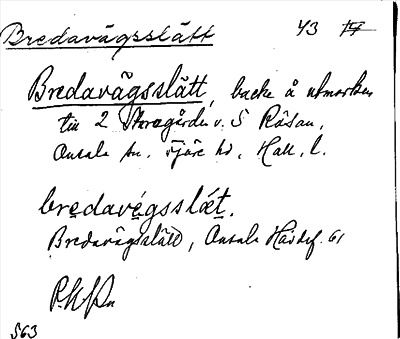 Bredavägsslätt 43 17
Bredavägsslätt, backe å utmarken
till 2 Storegården v. S Råsan,
Onsala sn. Fjäre hd, Hall. l.
bredavégsslǽt.
Bredavägsslätt, Onsala Hävdef. 61
563